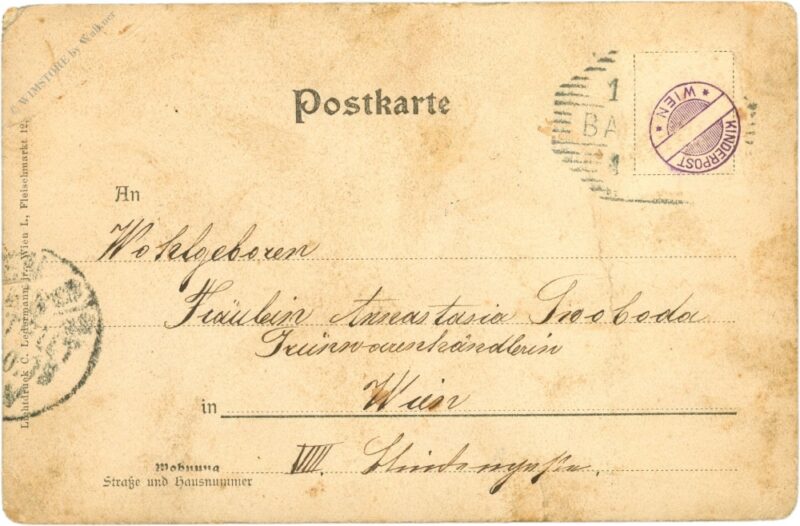 © WIMSTORE by Walkner
Postkarte
1
BA
WIEN
KINDERPOST
An
Wohlgeboren
Fräulein Annastasia Swoboda
Grünwarenhändlerin
in Wien
VIII
Wohnung
Straße und Hausnummer
Lichtdruck C. Ledermann jr., Wien I., Fleischmarkt 12.